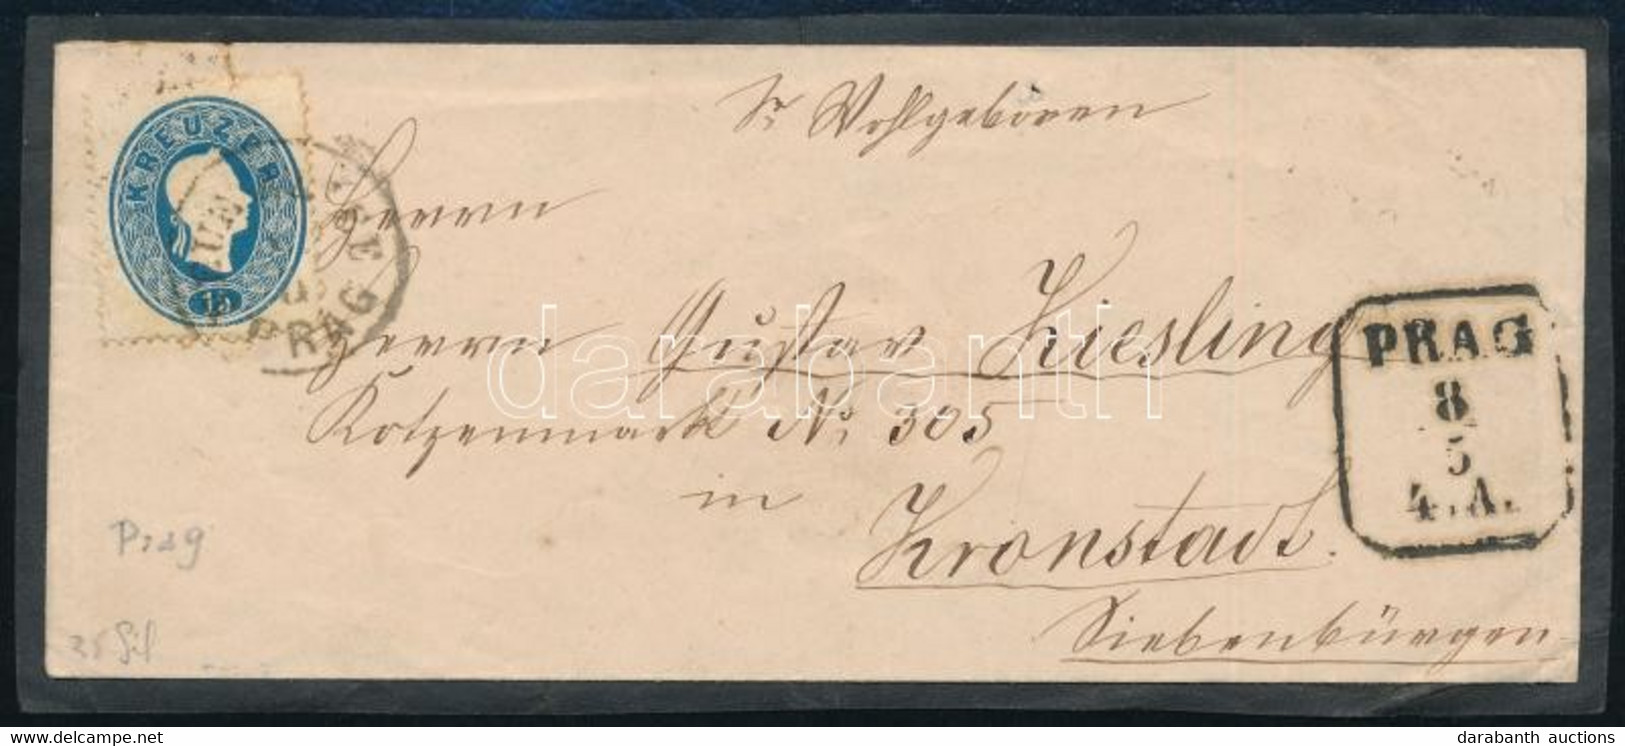 Sr Wohlgeboren
KREUZER
15
Herrn
PRAG
Herrn Gustav Kiesling
darabanth
PRAG
8
5
4.A.
Kotzenmarkt No 305
in
Kronstadt.
Siebenbürgen
Prag
delcampe.net
darabanth auctions